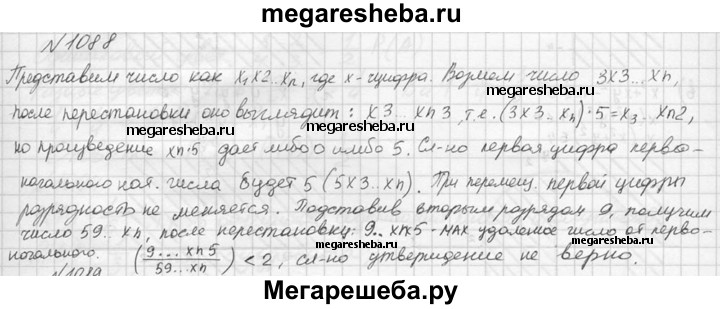 megaresheba.ru
N1088
Представим число как x₁x2..xn, где x-цифра. Возмем число 3x3...xn,
megaresheba.ru
после перестановки оно выглядит: x3...xn3, т.е. (3x3..xn)·5=x₃...xn2,
megaresheba.ru
megaresheba.ru
но произведение xn·5 дает либо 0 либо 5. Сл-но первая цифра перво-
начального нат. числа будет 5 (5x3..xn). При перемещ. первой цифры
разрядность не меняется. Подставив вторым разрядом 9, получим
число 59..xn, после перестановки: 9..xn5 - мах удаленое число от перво-
megaresheba.ru
megaresheba.ru
начального. (9...xn5/59...xn) < 2, сл-но утверждение не верно.
N1089
Мегарешеба.ру